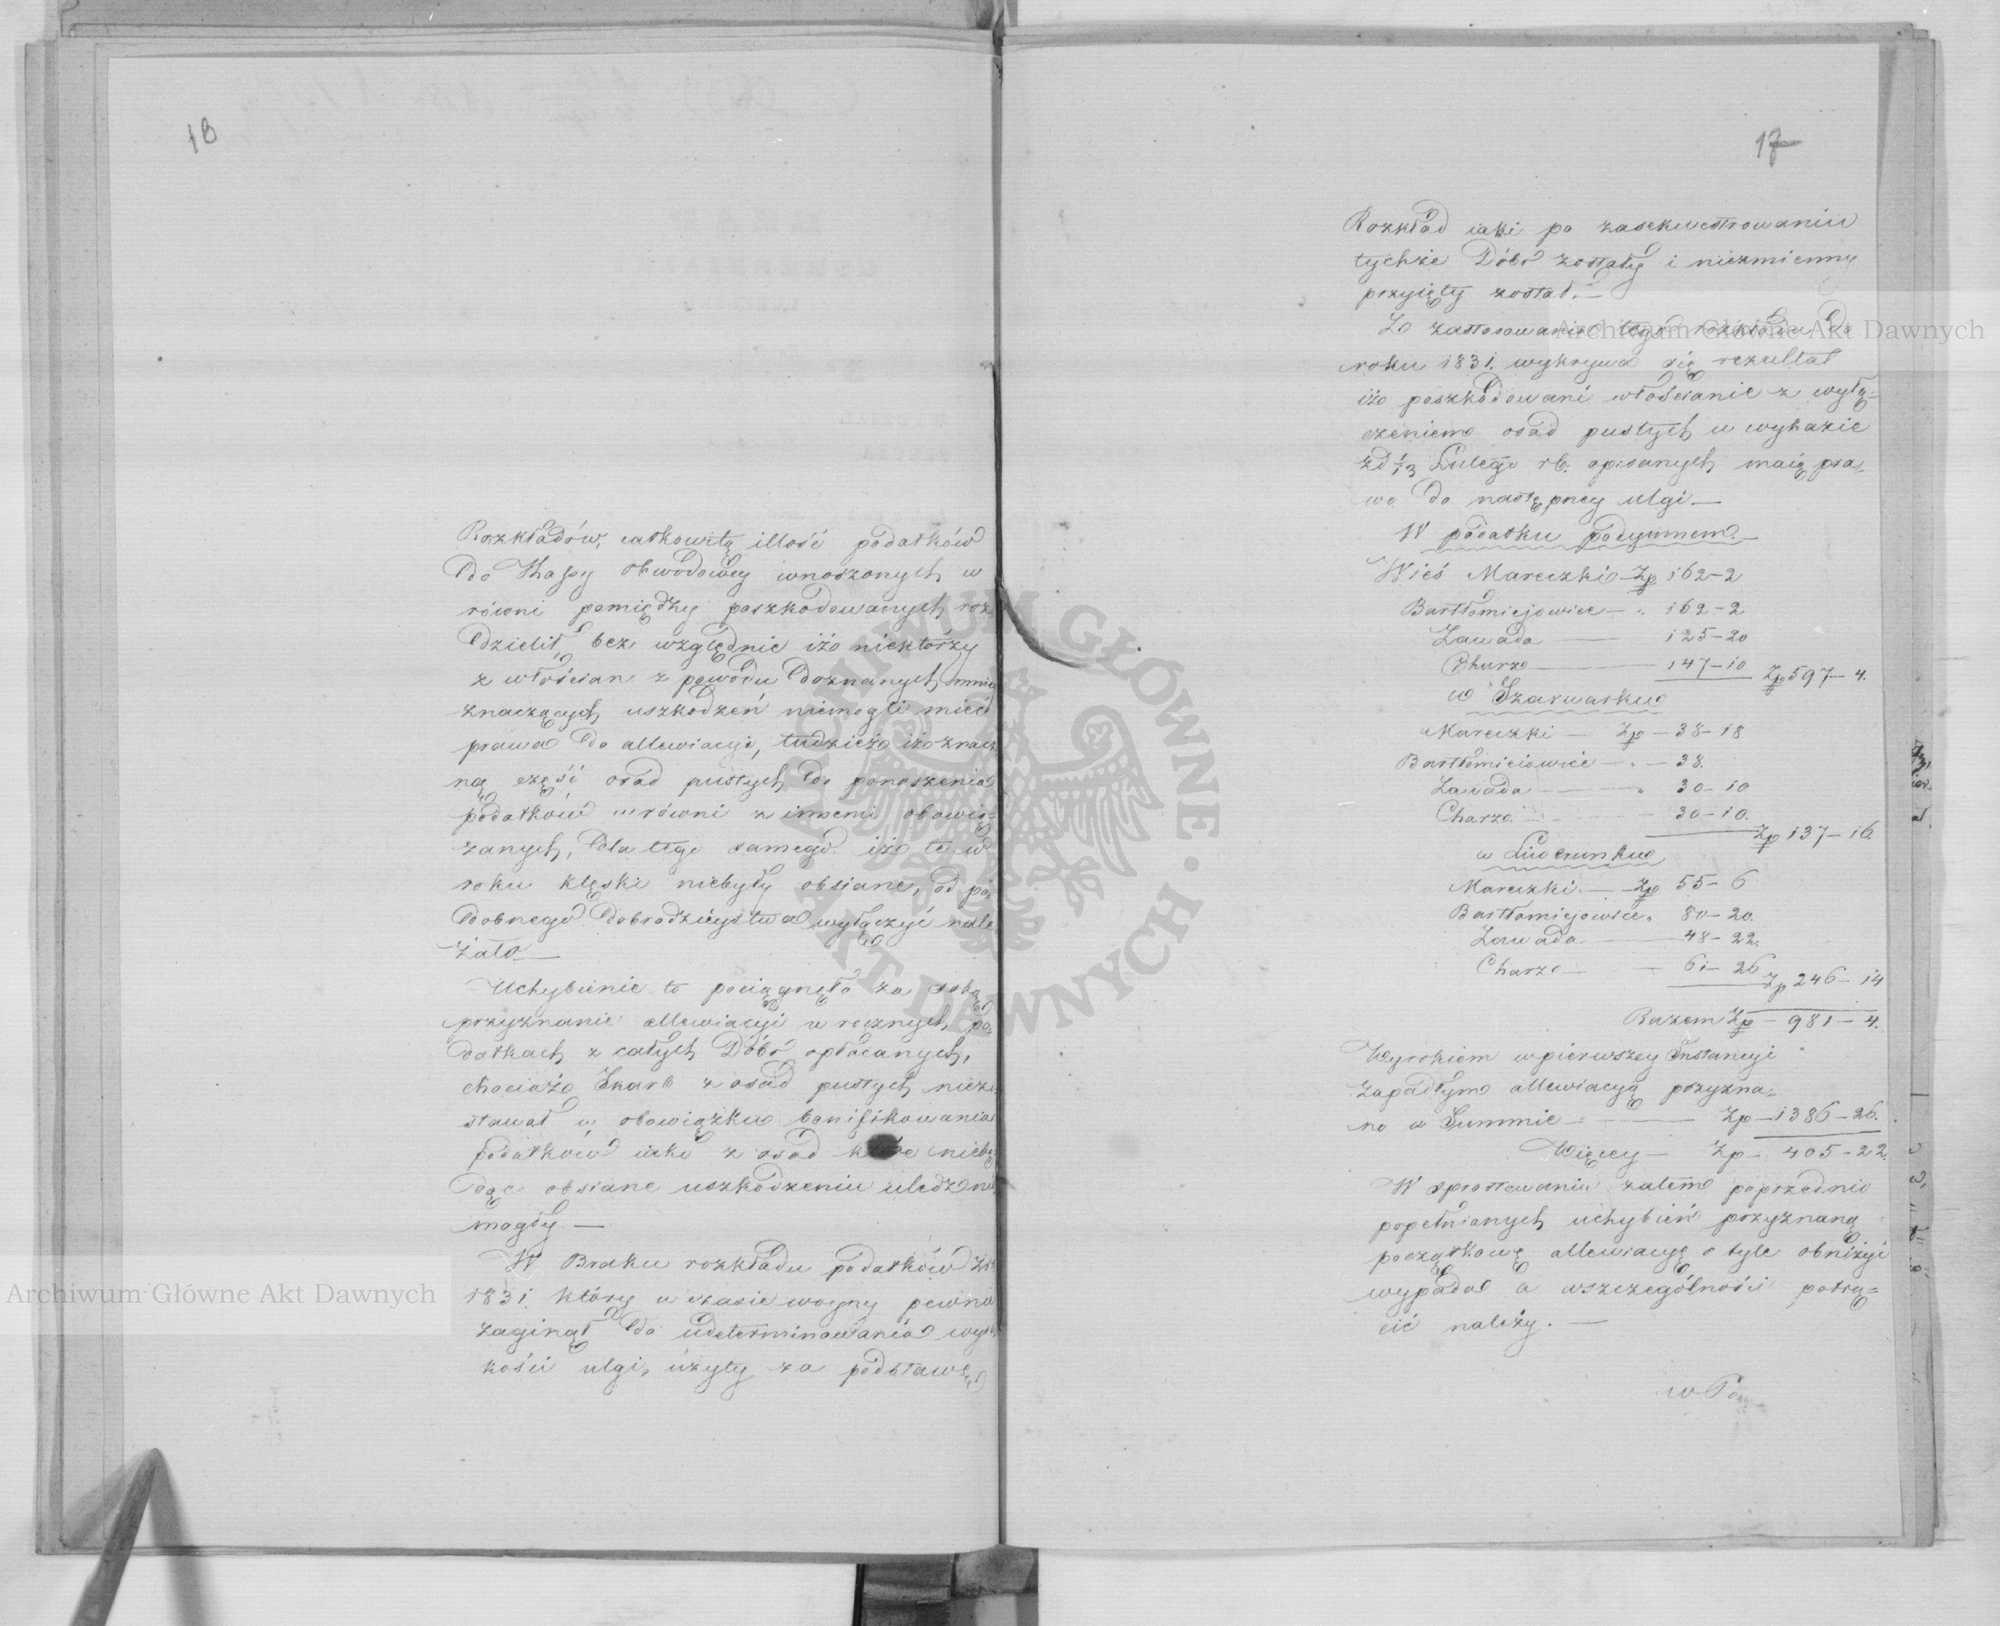 18
Rozkładów, całkowitą illość podatków
do Kassy obwodowey wnoszonych w
równi pomiędzy poszkodowanych roz
dzielił, bez względnie iż niektórzy
z włościan z powodu doznanych mniey
znaczących uszkodzeń niemogli mieć
prawa do allewiacyi, tudzież iż znacz
ną część osad pustych do ponoszenia
podatków w równi z innemi obowią=
zanych, dla tego samego iż te w
roku klęski niebyły obsiane, od po
dobnego dobrodzieystwa wyłączyć nale
żało —
Uchybienie to pociągnęło za sobą
przyznanie allewiacyi w rocznych po
datkach z całych Dóbr opłacanych,
chociaż Skarb z osad pustych niezo
stawał w obowiązku bonifikowania
podatków iako z osad które niebę
dąc obsiane uszkodzeniu uledz nie
mogły. —
W Braku rozkładu podatków z r.
1831. który w czasie woyny pewno
zaginął do udeterminowania wyso
kości ulgi, użyty za podstawę
17
Rozkład iaki po zasekwestrowaniu
tychże Dóbr zostały i niezmienny
przyięty został. —
Z zastosowania tego rozkładu do
roku 1831. wykrywa się rezultat
iż poszkodowani włościanie z wyłą=
czeniem osad pustych w wykazie
zd 1/13 Lutego rb. opisanych maią pra,
wo do następney ulgi —
W podatku podymnem —
Wieś Mareczki Zp 162-2
Bartłomiejowice — „ 162-2
Zawada — 125-20
Charzo — 147-10 Zp 597-4.
w Szarwarku
Mareczki — Zp — 38-18
Bartłomieiowice — „ — 38.
Zawada — „ 30-10
Charzo — 30-10.
Zp 137-16
w Liwerunku
Mareczki. — Zp 55-6
Bartłomiejowice „ 80-20.
Zawada — 48-22.
Charzo — „ 61-26
Zp 246-14
Razem Zp — 981-4.
Wyrokiem w pierwszey Instancyi
zapadłym allewiacyą przyzna=
no w Summie — Zp — 1386-26.
Więcey — Zp — 405-22.
W sprostowaniu zatem poprzednio
popełnianych uchybień przyznaną
początkowę allewiacyę o tyle obniżyć
wypada a wszczególności potrą=
cić należy. —
w Po
Archiwum Główne Akt Dawnych
Archiwum Główne Akt Dawnych
ARCHIWUM GŁÓWNE · AKT DAWNYCH ·